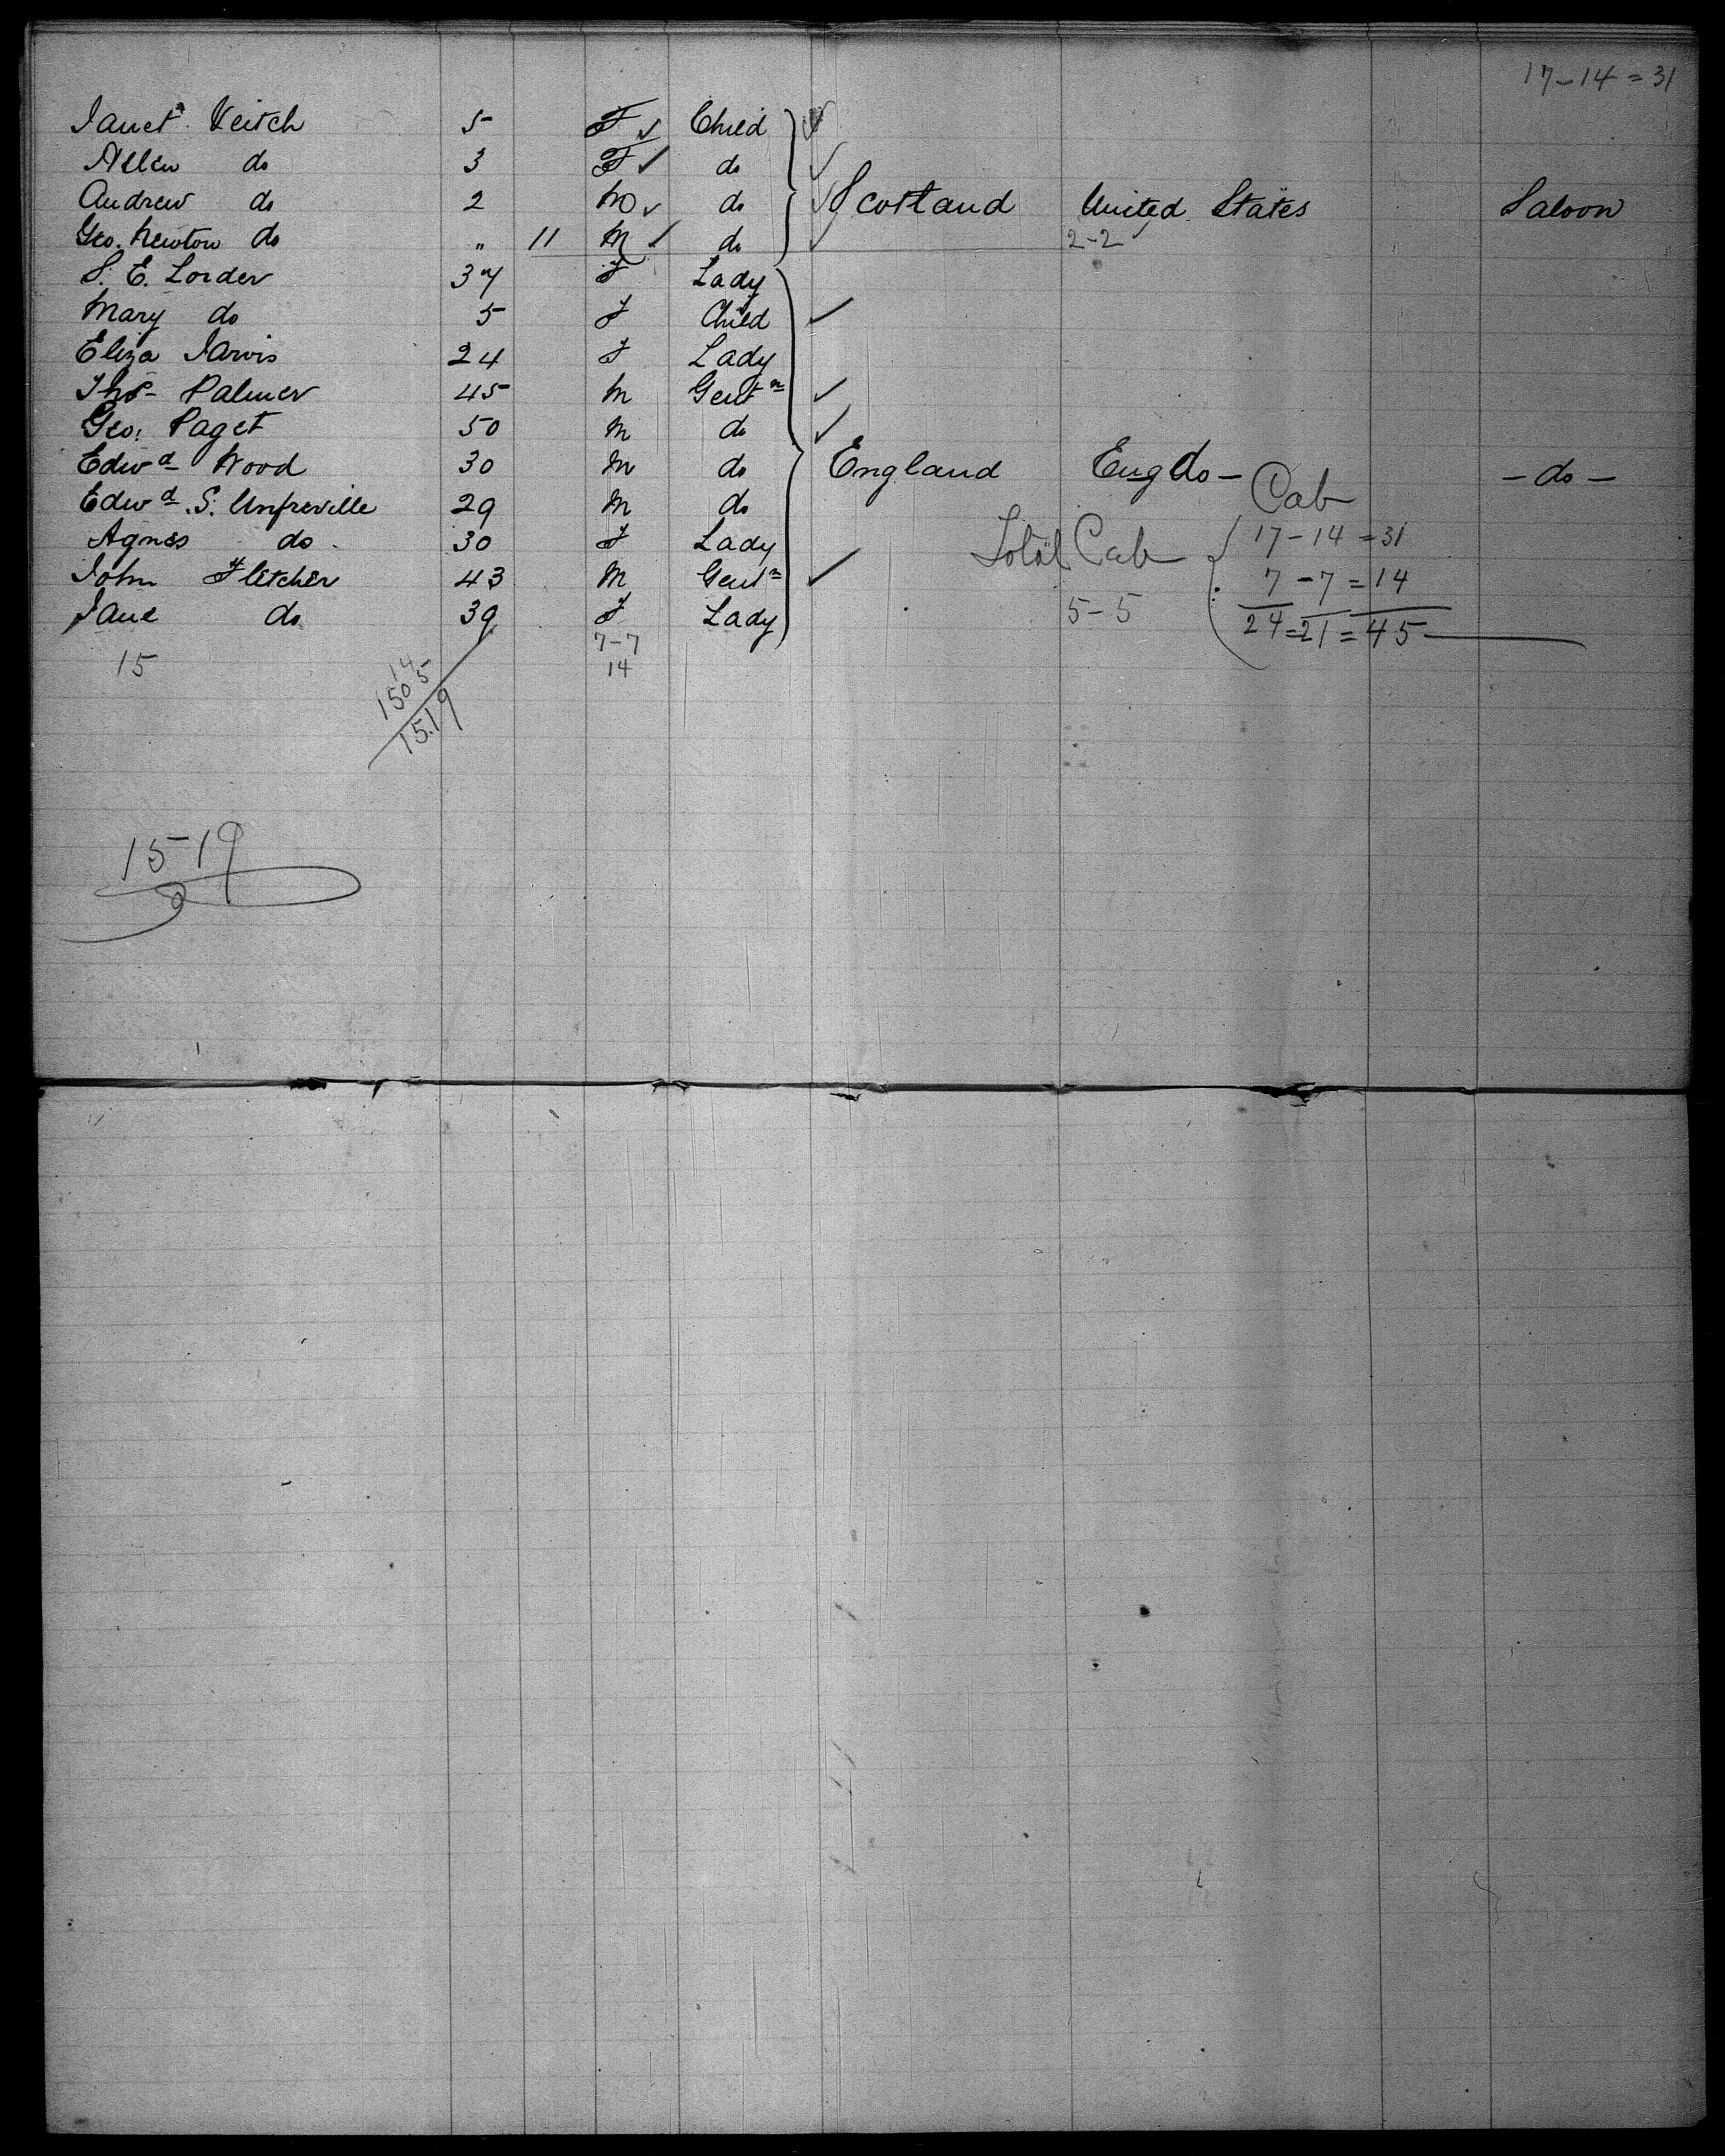 17-14=31
Janet Veitch 5 F Child
Allen do 3 F do
Andrew do 2 M do Scotland United States Saloon
Geo. Newton do " 11 M do 2-2
S. E. Lorder 37 F Lady
Mary do 5 F Child
Eliza Jarvis 24 F Lady
Thos Palmer 45 M Gentn
Geo. Paget 50 M do
Edwd Wood 30 M do England Eng do - - do -
Edwd. S. Umfreville 29 M do Cab
Agnes do 30 F Lady Total Cab 17-14=31
John Fletcher 43 M Gentn 7-7=14
Jane do 39 F Lady 5-5 24=21=45
7-7
15 14
14
1505
1519
1519